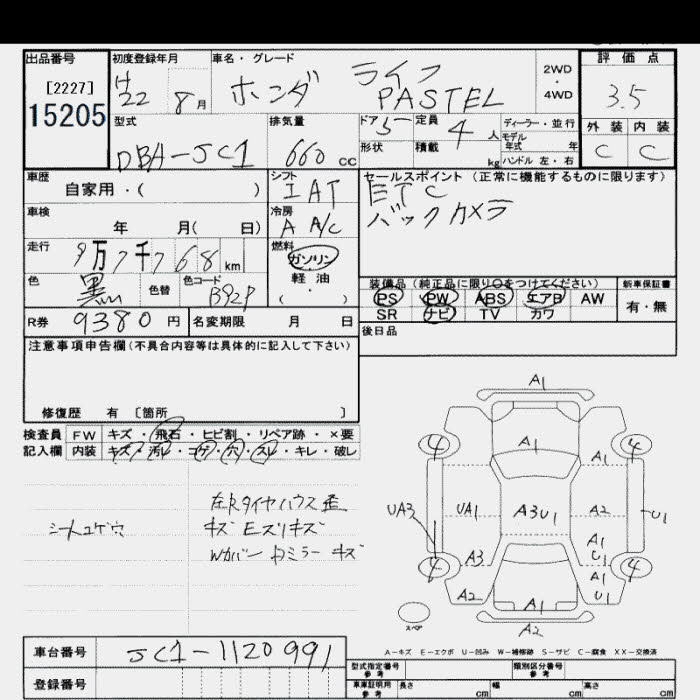 出品番号
[2227]
15205
初度登録年月
H22 8月
車名・グレード
ホンダ ライフ
PASTEL
2WD
・
4WD
評価点
3.5
外装 内装
C C
型式
DBA-JC1
排気量
660 cc
ドア 5
形状
定員 4 人
積載 kg
ディーラー・並行
モデル
年式 年
ハンドル 左・右
車歴
自家用・( )
シフト
IAT
セールスポイント (正常に機能するものに限ります)
ETC
バックカメラ
車検
年 月( 日)
冷房
A A/C
走行
9万7千768 km
燃料
ガソリン
軽油
・
( )
色
黒
色替
色コード
B92P
装備品 (純正品に限り○をつけてください)
PS PW ABS エアB AW
SR ナビ TV カワ
新車保証書
有・無
R券 9380 円
名変期限 月 日
後日品
注意事項申告欄(不具合内容等は具体的に記入して下さい)
修復歴 有 〔箇所 〕
検査員
記入欄
FW キズ・飛石・ヒビ割・リペア跡・×要
内装 キズ・汚レ・コゲ・穴・スレ・キレ・破レ
シートコゲ穴
左Rタイヤハウス歪
キズ Eズリキズ
Wカバー 右ミラー キズ
A1
4 A1 4
UA3 UA1 A3U1 A2 U1
A3 A1
U1
4 A1 4
A2 A1 U1
A1
A2
スペア
A-キズ E-エクボ U-凹み W-補修跡 S-サビ C-腐食 XX-交換済
車台番号 JC1-1120991
登録番号
型式指定番号
参考
類別区分番号
参考
車庫証明用
参考
長さ cm 幅 cm 高さ cm